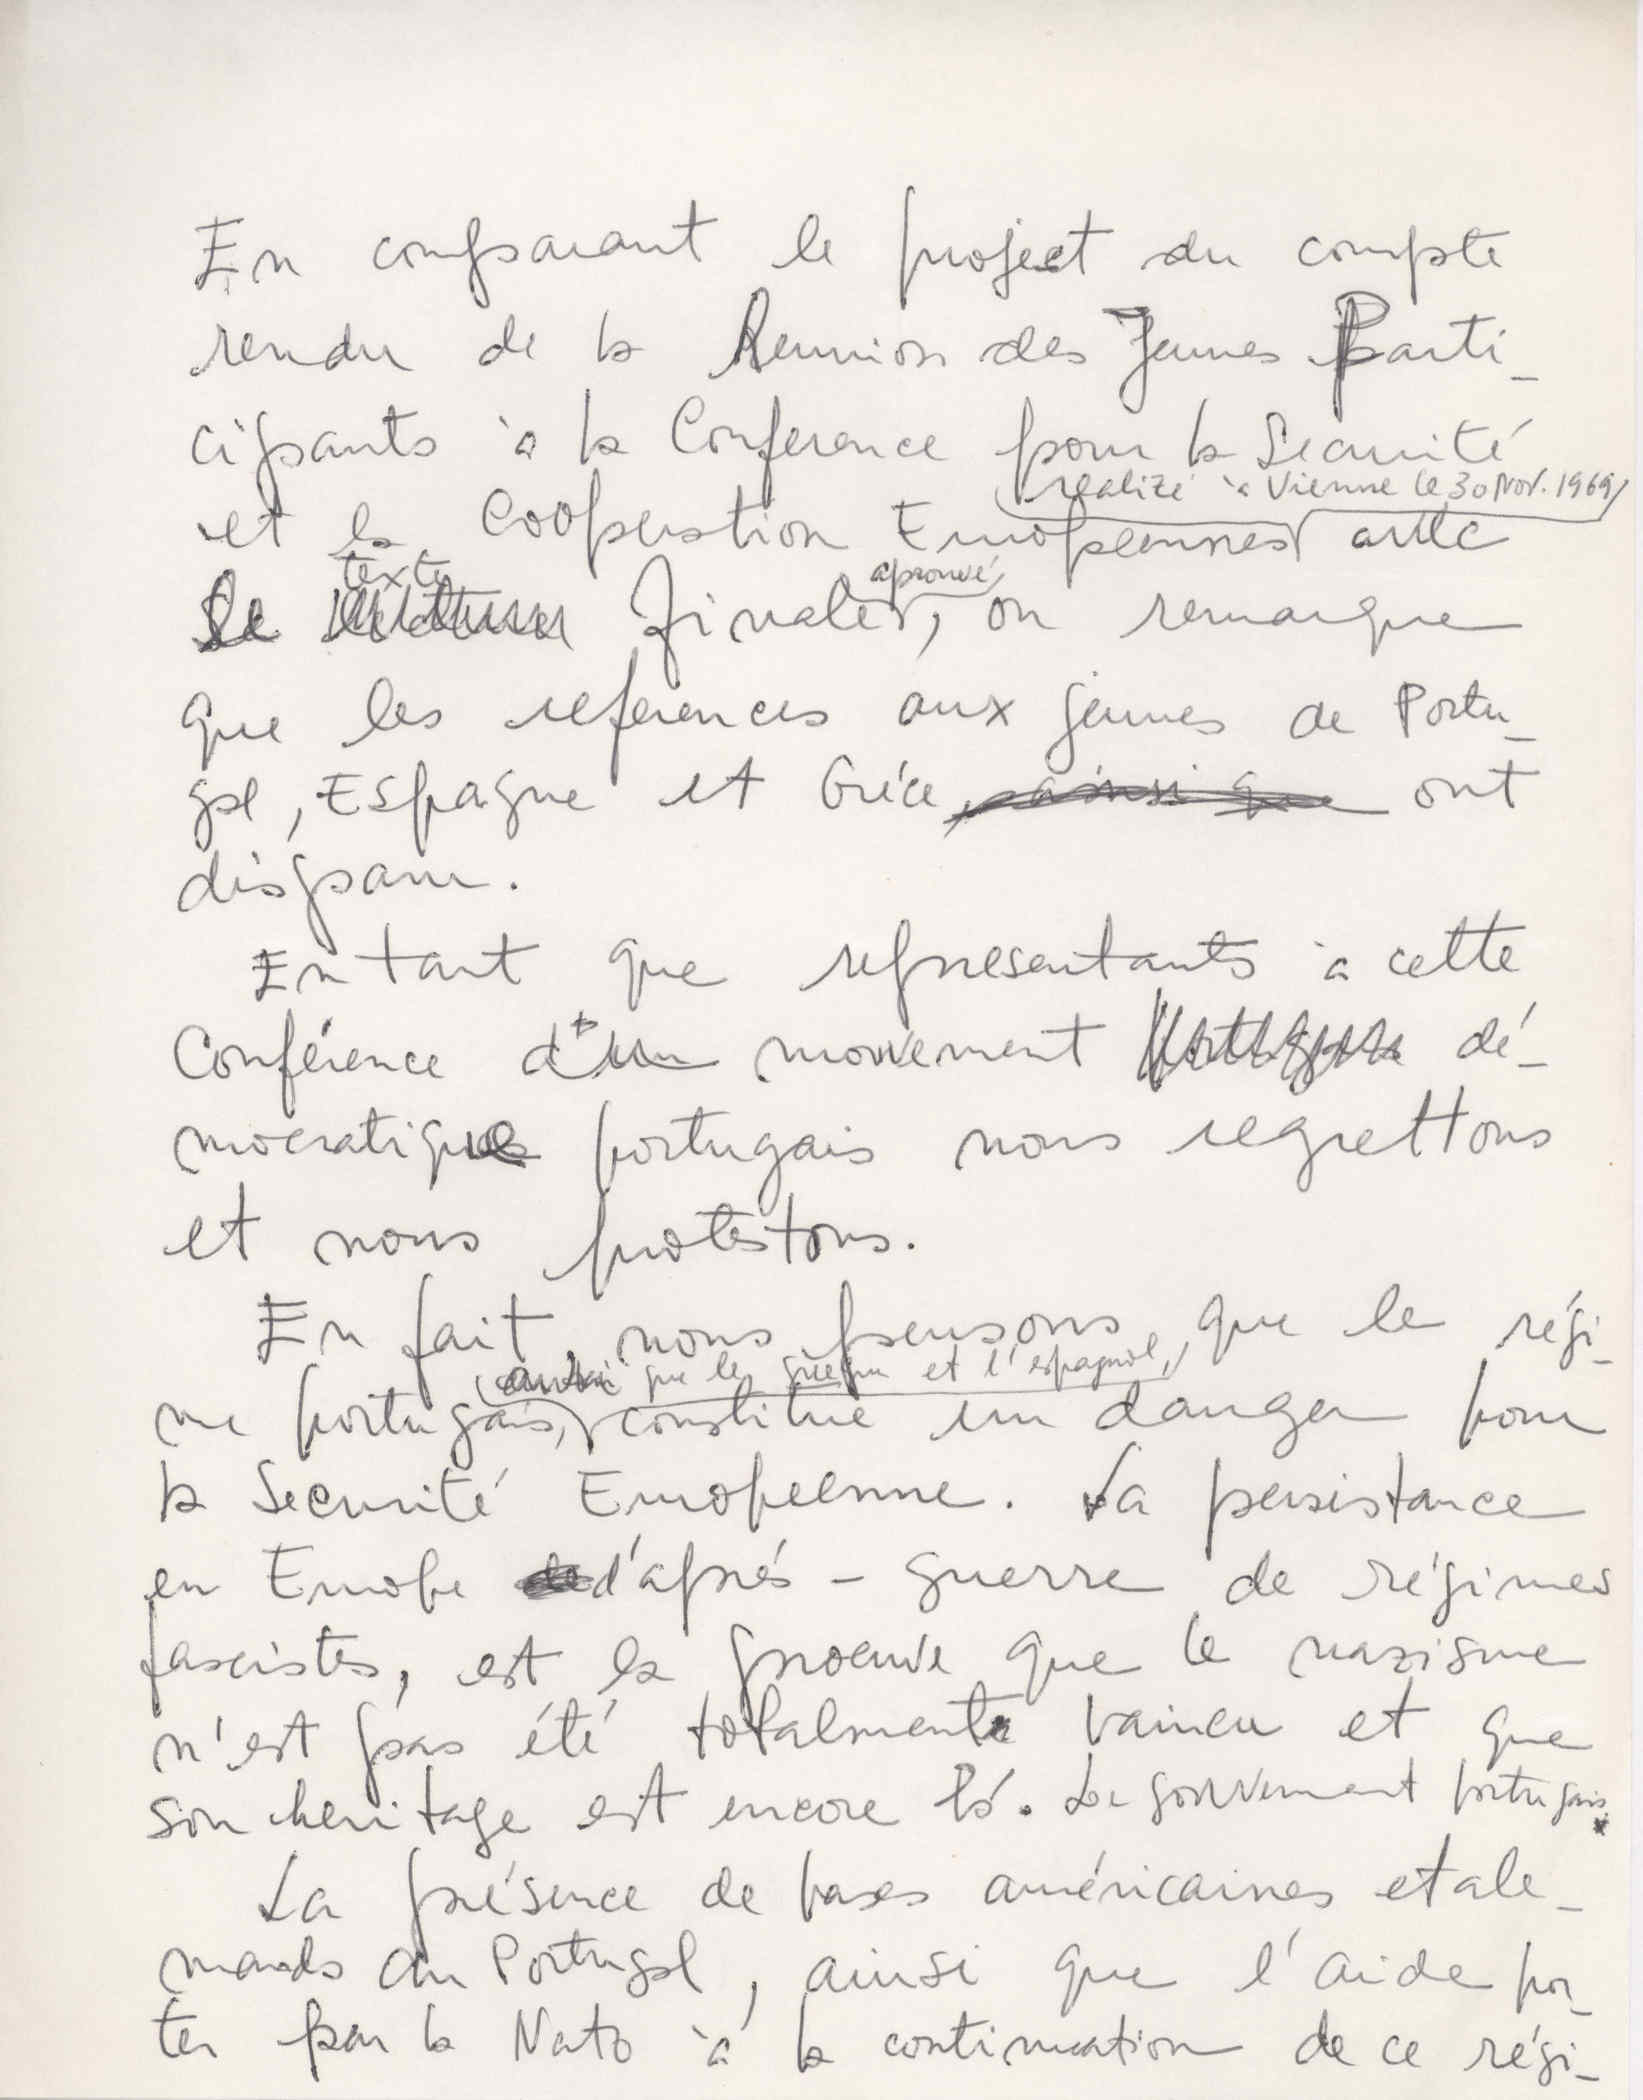 En comparant le project du compte
rendu de la Reunion des Jeunes Parti-
cipants à la Conference pour la Securité
realizé à Vienne le 30 Nov. 1969
et la Cooperation Européennes avec
texte
aprouvé
le finale, on remarque
que les references aux jeunes de Portu-
gal, Espagne et Gréce ainsi que ont
disparu.
En tant que representants à cette
Conférence d'un mouvement dé-
mocratique portugais nous regrettons
et nous protestons.
En fait, nous pensons, que le régi-
ainsi que le grèque et l'espagnol,
me portugais, constitue un danger pour
la Securité Européenne. La persistance
en Europe d'aprés-guerre de régimes
fascistes, est la preuve que le nazisme
n'est pas été totalment vaincu et que
son heritage est encore lá. Le gouvernment portugais
La présence de bases américaines et ale-
mands au Portugal, ainsi que l'aide por-
ter par la Nato à la continuation de ce régi-